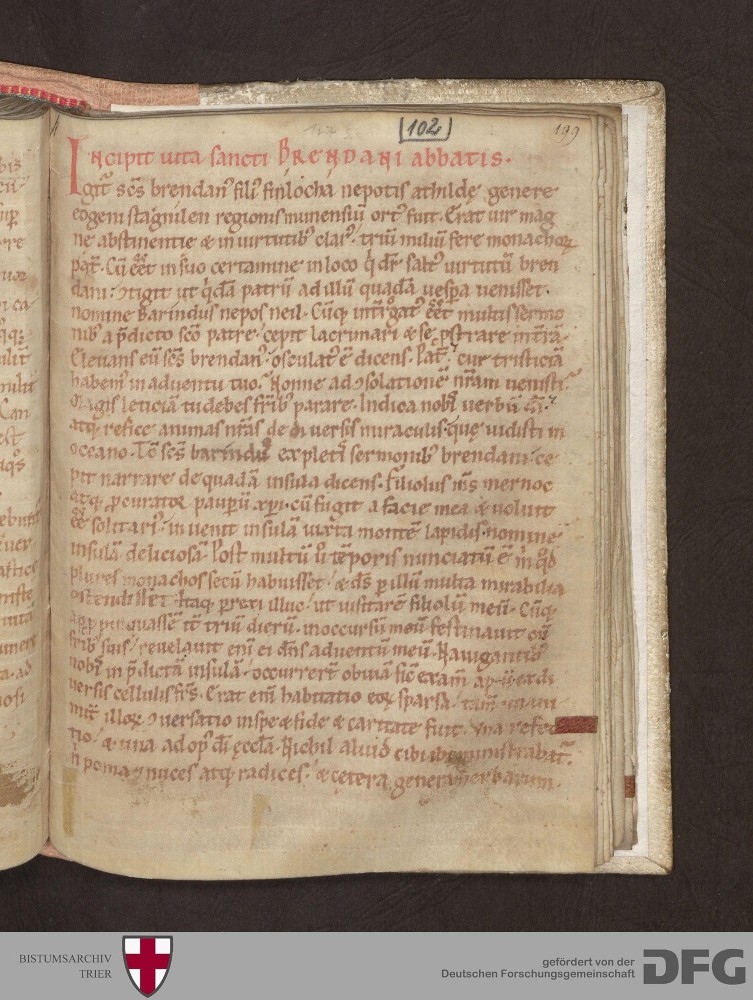 [102] 199
Incipit uita sancti Brendani abbatis.
git᷑ sc̄s brendan᷒ fili᷒ finlocha nepotis athilde genere
eogeni stagnilen regionis munensiū ort᷒ fuit. Erat uir mag
ne abstinentie & in uirtutib᷒ clar᷒. triū miliū fere monachoꝝ
pat᷑. Cū eēt in suo certamine in loco q̇ dr̄ salt᷒ uirtutū bren
dani: ꝯtigit ut q̇dā patrū ad illū quadā uespa uenisset.
nomine Barindus nepos neil. Cūq; int̄rogat᷒ eēt multis sermo
nib᷒ a p̄dicto sc̄o patre. cepit lacrimari & se p̄strare in t̄rā.
Eleuans eū sc̄s brendan᷒. osculat᷒ ē dicens. Pat᷑. cur tristiciā
habem᷒ in aduentu tuo. Nonne ad ꝯsolationē nr̄am uenisti.
Magis leticiā tu debes fr̄ib᷒ parare. Indica nob᷒ uerbū d̄i.
atq; refice animas nr̄as de diuersis miraculis. quę uidisti in
oceano. Tc̄ sc̄s barind᷒ expletis sermonib᷒ brendani. ce
pit narrare de quadā insula dicens. Filiolus m̄s mernoc
atq; ꝓcurator pauperū xp̄i. cū fugit a facie mea & uoluit
eē solitari᷒. inuenit insulā iuxta montē lapidis. nomine
insulā deliciosā. Post multū u᷑ tēporis nunciatū ē m̄ qd̄
plures monachos secū habuisset. & d̄s ꝑ illū multa mirabilia
ostendisset. Itaq; ꝑrexi illuc. ut uisitarē filiolū meū. Cūq;
appropinquassē it̄ triū dierū. in occursū meū festinauit cū
fr̄ib᷒ suis. reuelauit eni᷑ ei dn̄s aduentū meū. Nauigantib᷒
nob᷒ in p̄dictā insulā. occurrer̄t obuiā sic examen apū ex di
uersis cellulis fr̄s. Erat eni᷑ habitatio eoꝝ sparsa. tam̄ unani
mit᷑ illoꝝ ꝯuersatio in spe & fide & caritate fuit. Una refec
tio. & una ad op᷒ d̄i ęcclā. Nichil aliud cibi ministrabat᷑.
n̄ poma & nuces atq; radices. & cetera genera herbarum.
BISTUMSARCHIV
TRIER
gefördert von der
Deutschen Forschungsgemeinschaft
DFG